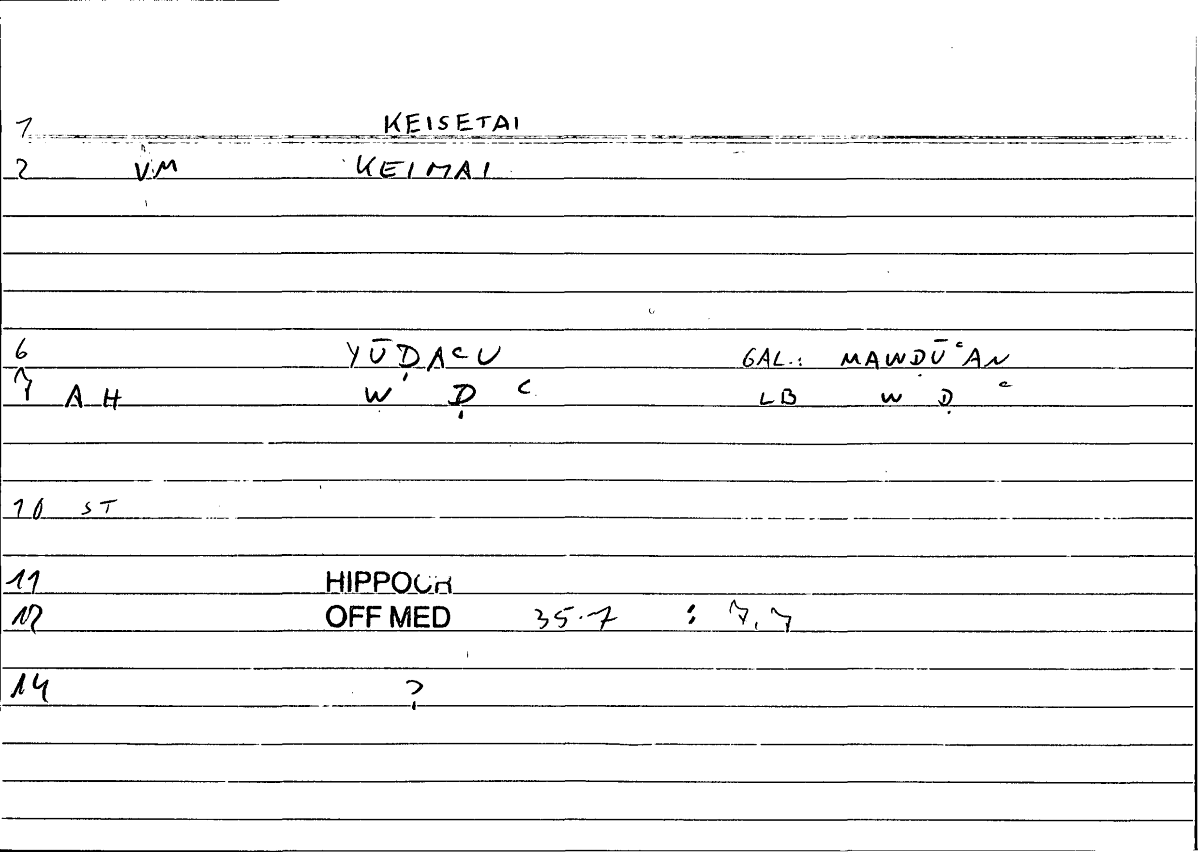 1 KEISETAI
2 VM KEIMAI
6 YŪḌAᶜU GAL.: MAWḌŪᶜAN
7 AH W Ḍ ᶜ LB W Ḍ ᶜ
10 ST
11 HIPPOCR
12 OFF MED 35.7 : 7,7
14 ?